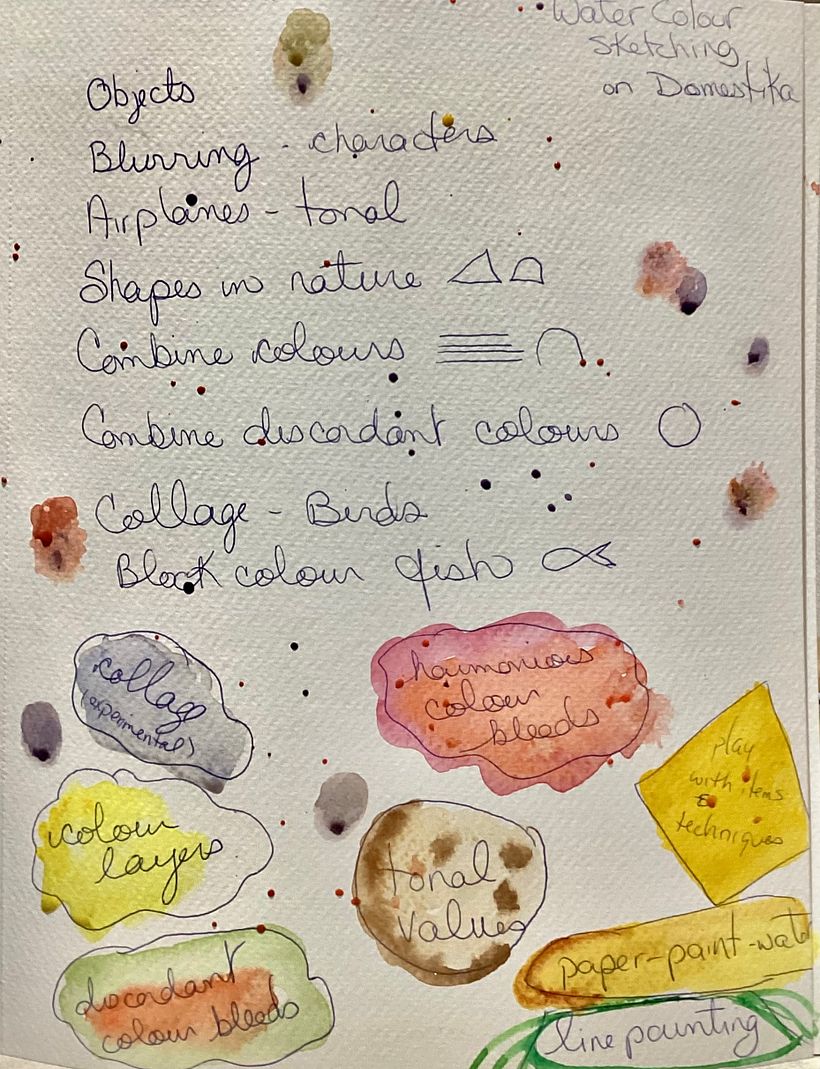 Water Colour
Sketching
on Domestika
Objects
Blurring - characters
Airplanes - tonal
Shapes in nature
Combine colours
Combine discordant colours
Collage - Birds
Block colour fish
collage
(expermental)
harmonious
colour
bleeds
play
with items
&
techniques
colour
layers
tonal
values
paper-paint-wat
discordant
colour bleeds
line painting